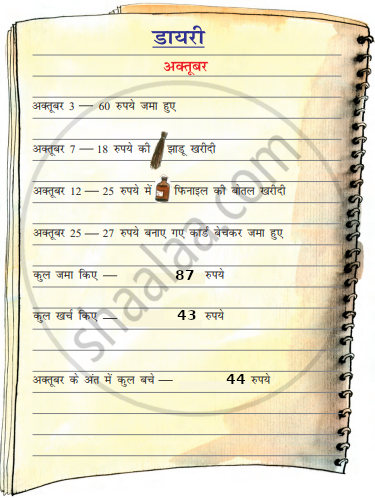 डायरी
अक्तूबर
अक्तूबर 3 — 60 रुपये जमा हुए
अक्तूबर 7 — 18 रुपये की झाडू खरीदी
अक्तूबर 12 — 25 रुपये में फिनाइल की बोतल खरीदी
अक्तूबर 25 — 27 रुपये बनाए गए कार्ड बेचकर जमा हुए
कुल जमा किए — 87 रुपये
कुल खर्च किए — 43 रुपये
अक्तूबर के अंत में कुल बचे — 44 रुपये
shaalaa.com